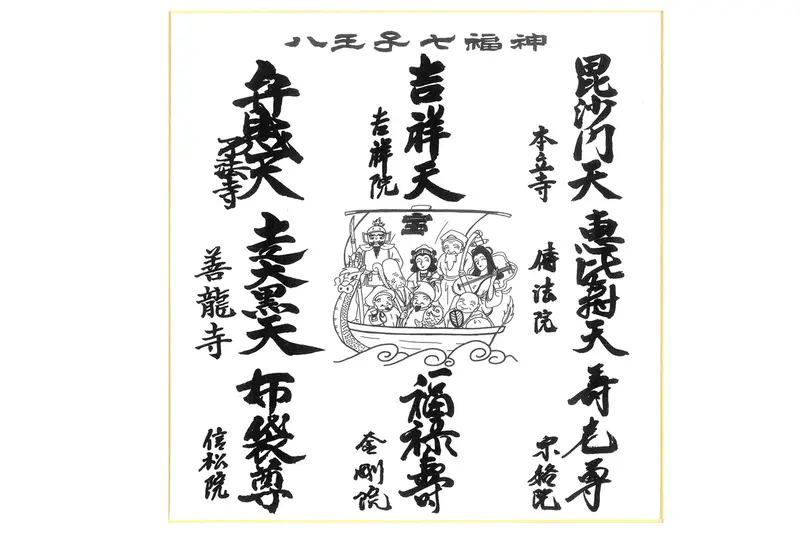 八王子七福神
毘沙門天
本立寺
恵比寿天
傳法院
寿老尊
宗格院
吉祥天
吉祥院
宝
福禄壽
金剛院
弁財天
了法寺
走大黒天
善龍寺
布袋尊
信松院